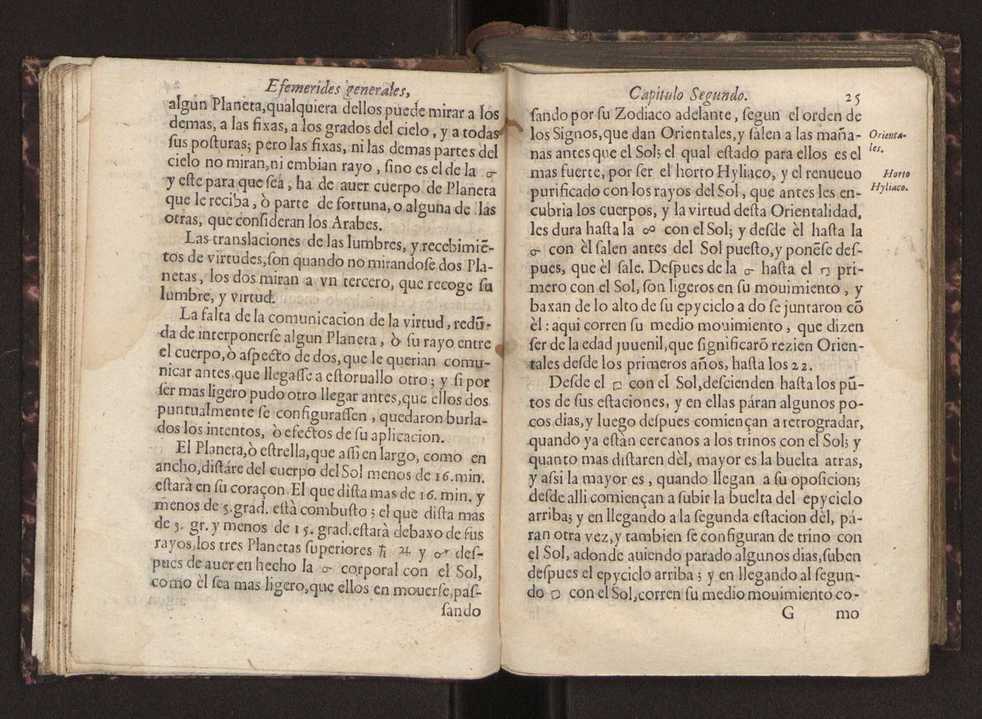 Efemerides generales,
algun Planeta,qualquiera dellos puede mirar a los
demas, a las fixas, a los grados del cielo, y a todas
ſus poſturas; pero las fixas, ni las demas partes del
cielo no miran,ni embian rayo, ſino es el de la ☌
y eſte para que ſeá, ha de auer cuerpo de Planeta
que le reciba, ò parte de fortuna, o alguna de las
otras, que conſideran los Arabes.
Las translaciones de las lumbres, y recebimiẽ-
tos de virtudes,ſon quando no mirandoſe dos Pla-
netas, los dos miran a vn tercero, que recoge ſu
lumbre, y virtud.
La falta de la comunicacion de la virtud, redũ-
da de interponerſe algun Planeta, ò ſu rayo entre
el cuerpo,ò aſpecto de dos,que le querian comu-
nicar antes,que llegaſſe a eſtoruallo otro; y ſi por
ſer mas ligero pudo otro llegar antes,que ellos dos
puntualmente ſe configuraſſen, quedaron burla-
dos los intentos, ò efectos de ſu aplicacion.
El Planeta,ò eſtrella,que aſſi en largo, como en
ancho,diſtáre del cuerpo del Sol menos de 16.min.
eſtarà en ſu coraçon. El que diſta mas de 16. min. y
menos de 5.grad. eſtà combuſto; el que diſta mas
de 5. gr. y menos de 15. grad.eſtarà debaxo de ſus
rayos,los tres Planetas ſuperiores ♄ ♃ y ♂ deſ-
pues de auer en hecho la ☌ corporal con el Sol,
como èl ſea mas ligero,que ellos en mouerſe,paſ-
ſando
Capitulo Segundo. 25
ſando por ſu Zodiaco adelante, ſegun el orden de
los Signos,que dan Orientales,y ſalen a las maña-
Orienta-
les.
nas antes que el Sol; el qual eſtado para ellos es el
mas fuerte, por ſer el horto Hyliaco, y el renueuo
Horto
Hyliaco.
purificado con los rayos del Sol, que antes les en-
cubria los cuerpos, y la virtud deſta Orientalidad,
les dura haſta la ☍ con el Sol; y deſde èl haſta la
☌ con èl ſalen antes del Sol pueſto,y ponẽſe deſ-
pues, que èl ſale. Deſpues de la ☌ haſta el □ pri-
mero con el Sol, ſon ligeros en ſu mouimiento, y
baxan de lo alto de ſu epyciclo a do ſe juntaron cõ
èl: aqui corren ſu medio mouimiento, que dizen
ſer de la edad juuenil,que ſignificarõ rezien Orien-
tales deſde los primeros años, haſta los 22.
Deſde el □ con el Sol,deſcienden haſta los pũ-
tos de ſus eſtaciones, y en ellas páran algunos po-
cos dias,y luego deſpues comiençan a retrogradar,
quando ya eſtàn cercanos a los trinos con el Sol; y
quanto mas diſtaren dèl, mayor es la buelta atras,
y aſsi la mayor es, quando llegan a ſu opoſicion;
deſde alli comiençan a ſubir la buelta del epyciclo
arriba; y en llegando a la ſegunda eſtacion dèl, pá-
ran otra vez,y tambien ſe configuran de trino con
el Sol, adonde auiendo parado algunos dias,ſuben
deſpues el epyciclo arriba; y en llegando al ſegun-
do □ con el Sol,corren ſu medio mouimiento co-
G mo